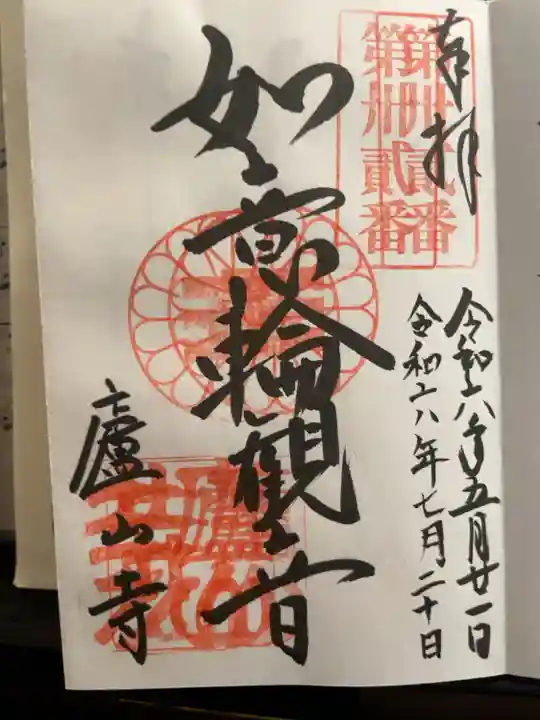 奉拝
第卅貳番
第卅貳番
令和六年五月廿一日
令和六年七月二十日
如意輪觀音
廬山寺